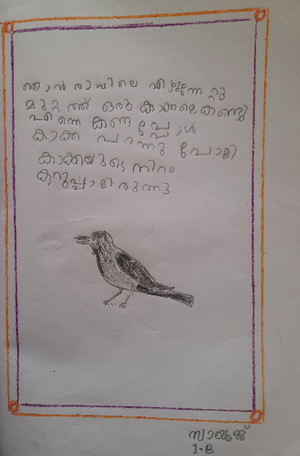 ഞാൻ രാവിലെ എഴുന്നേറ്റു
മുറ്റത്ത് ഒരു കാക്കയെ കണ്ടു
എന്നെ കണ്ടപ്പോൾ
കാക്ക പറന്നു പോയി
കാക്കയുടെ നിറം
കറുപ്പായിരുന്നു
സ്വായൂജ്
1-B